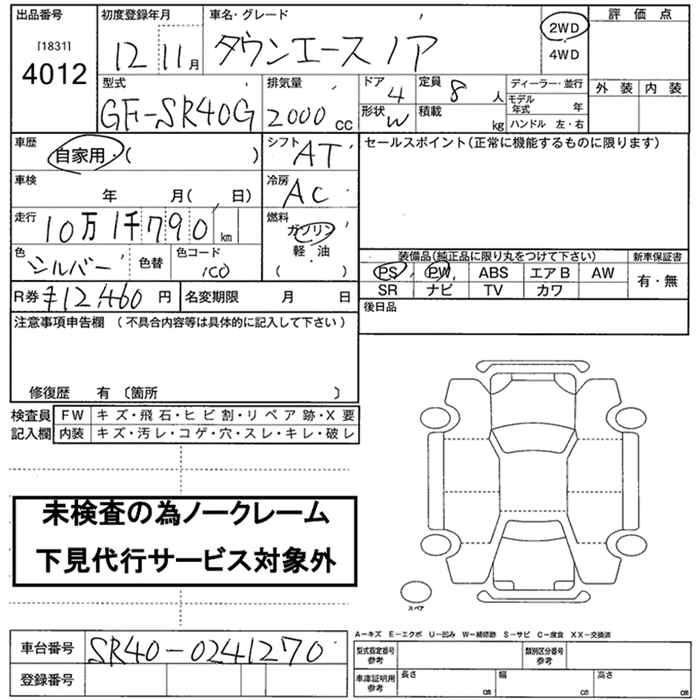 出品番号 初度登録年月 車名・グレード 評価点
［1831］
4012
12年11月 タウンエースノア
2WD
4WD
外装 内装
型式 排気量 ドア 定員 ディーラー・並行
GF-SR40G 2000cc 4 8人
形状 W 積載 kg
モデル年式 年
ハンドル 左・右
車歴 シフト セールスポイント(正常に機能するものに限ります)
自家用・( ) AT
車検 冷房
年 月( 日) AC
走行 燃料
10万1千790km ガソリン
軽・油
( )
色 色替 色コード
シルバー 1C0
装備品(純正品に限り丸をつけて下さい) 新車保証書
PS PW ABS エアB AW 有・無
SR ナビ TV カワ
R券 ¥12460円 名変期限 月 日
後日品
注意事項申告欄 (不具合内容等は具体的に記入して下さい)
修復歴 有 〔箇所 〕
検査員 FW キズ・飛石・ヒビ割・リペア跡・X要
記入欄 内装 キズ・汚レ・コゲ・穴・スレ・キレ・破レ
未検査の為ノークレーム
下見代行サービス対象外
スペア
A−キズ E−エクボ U−凹み W−補修跡 S−サビ C−腐食 XX−交換済
車台番号 SR40-0241270
型式指定番号 参考 類別区分番号 参考
登録番号
車庫証明用 参考 長さ cm 幅 cm 高さ cm